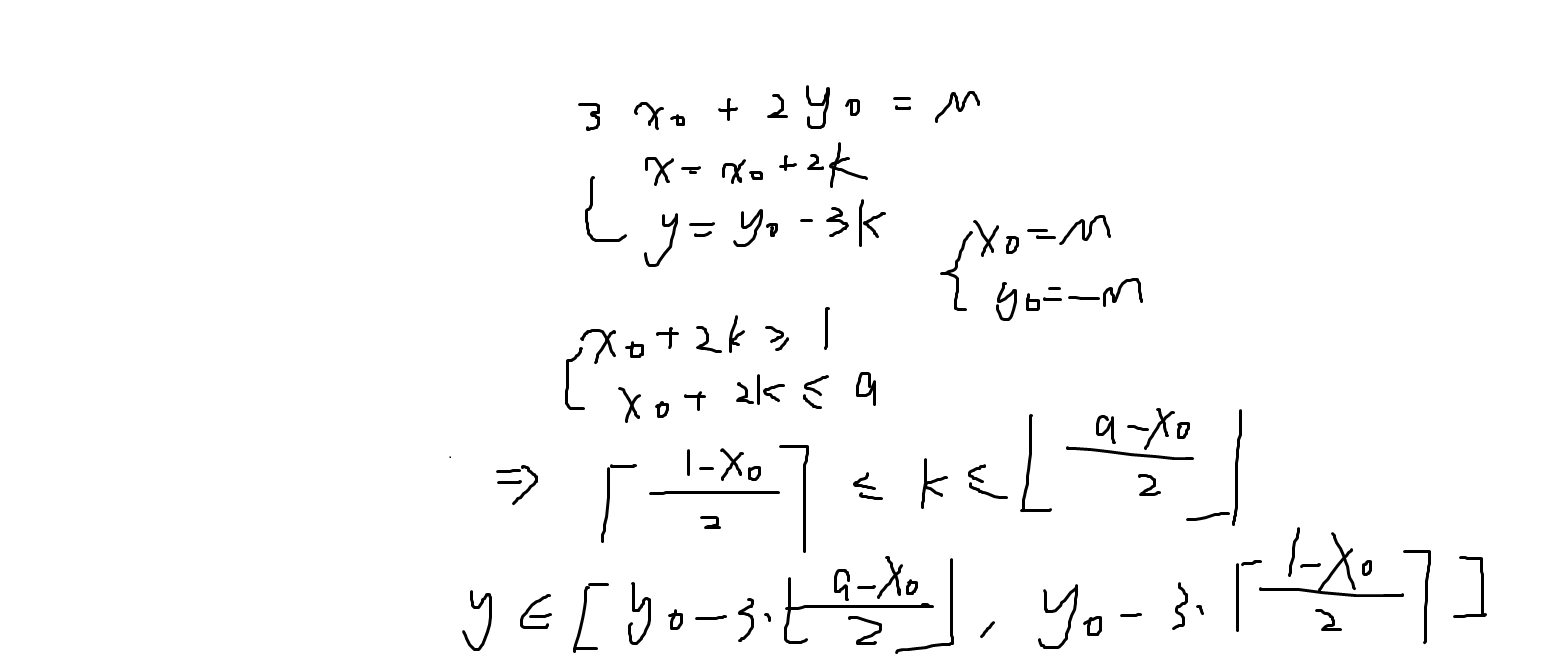 3 x₀ + 2 y₀ = m
{ x = x₀ + 2k
y = y₀ - 3k
{ x₀ = m
y₀ = -m
{ x₀ + 2k ≥ 1
x₀ + 2k ≤ a
⇒ ⌈(1-x₀)/2⌉ ≤ k ≤ ⌊(a-x₀)/2⌋
y ∈ [y₀ - 3·⌊(a-x₀)/2⌋, y₀ - 3·⌈(1-x₀)/2⌉]